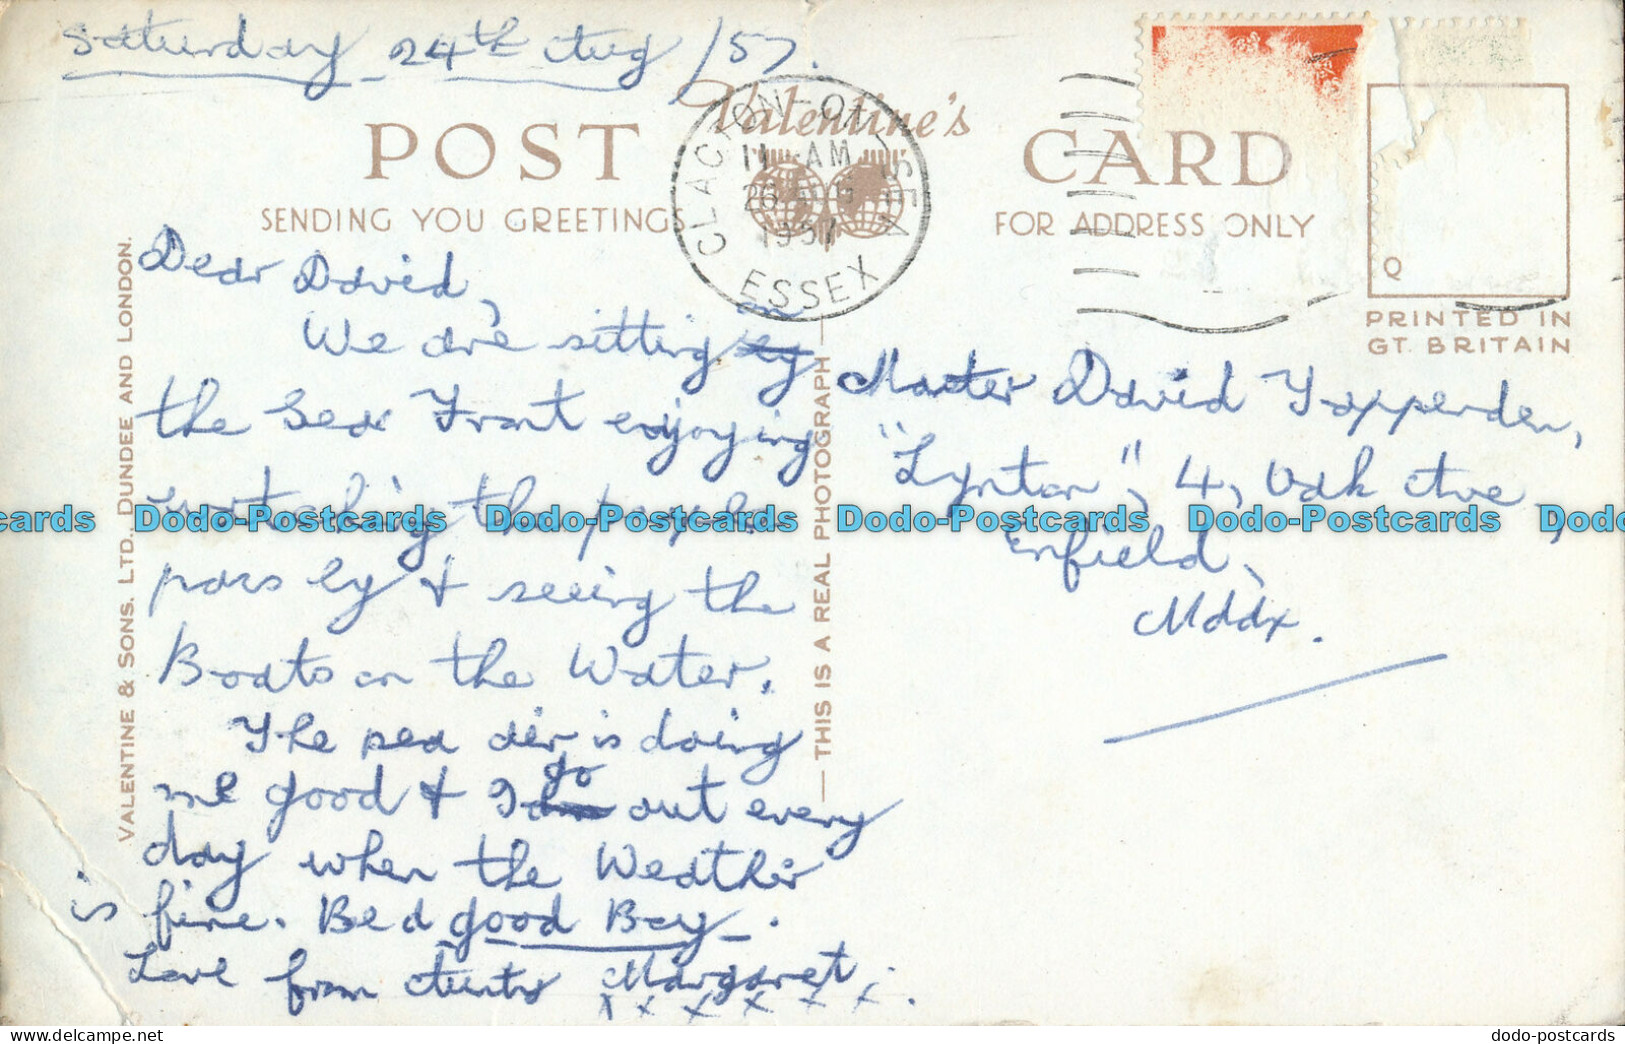 Saturday 24th Aug /57.
Valentine's
POST CARD
SENDING YOU GREETINGS
FOR ADDRESS ONLY
CLACTON-ON-SEA
11-AM
26 AUG
1957
ESSEX
Q
PRINTED IN
GT. BRITAIN
VALENTINE & SONS. LTD. DUNDEE AND LONDON.
THIS IS A REAL PHOTOGRAPH
Dear David,
We are sitting on
the Sea Front enjoying
watching the people
pass by & seeing the
Boats on the Water.
The sea air is doing
me good & I go out every
day when the Weather
is fine. Be a good Boy.
Love from Aunty Margaret.
x x x x x x.
Master David Tapperden,
"Lynton", 4, Oak Ave,
Enfield,
Mddx.
Dodo-Postcards Dodo-Postcards Dodo-Postcards Dodo-Postcards Dodo-Postcards
dodo-postcards.com